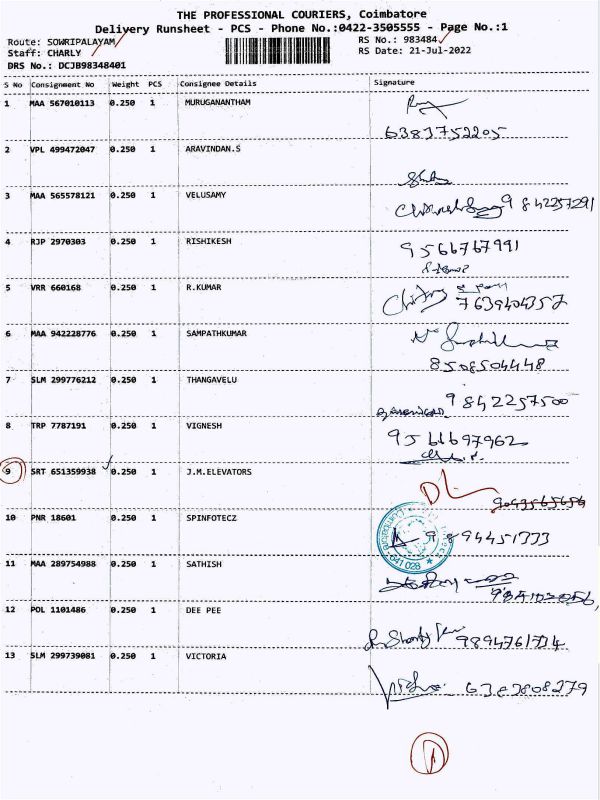 THE PROFESSIONAL COURIERS, Coimbatore
Delivery Runsheet - PCS - Phone No.:0422-3505555 - Page No.:1
Route: SOWRIPALAYAM RS No.: 983484
Staff: CHARLY RS Date: 21-Jul-2022
DRS No.: DCJB98348401
S No Consignment No Weight PCS Consignee Details Signature
1 MAA 567010113 0.250 1 MURUGANANTHAM
6383752205
2 VPL 499472047 0.250 1 ARAVINDAN.S
3 MAA 565578121 0.250 1 VELUSAMY 9842257291
4 RJP 2970303 0.250 1 RISHIKESH 9566767991
5 VRR 660168 0.250 1 R.KUMAR
7639404357
6 MAA 942228776 0.250 1 SAMPATHKUMAR
8508504448
7 SLM 299776212 0.250 1 THANGAVELU
9842257500
8 TRP 7787191 0.250 1 VIGNESH
9566697962
9 SRT 651359938 0.250 1 J.M.ELEVATORS
DL
10 PNR 18601 0.250 1 SPINFOTECZ
9894451333
11 MAA 289754988 0.250 1 SATHISH
12 POL 1101486 0.250 1 DEE PEE
9894761734
13 SLM 299739081 0.250 1 VICTORIA
6383808279
1